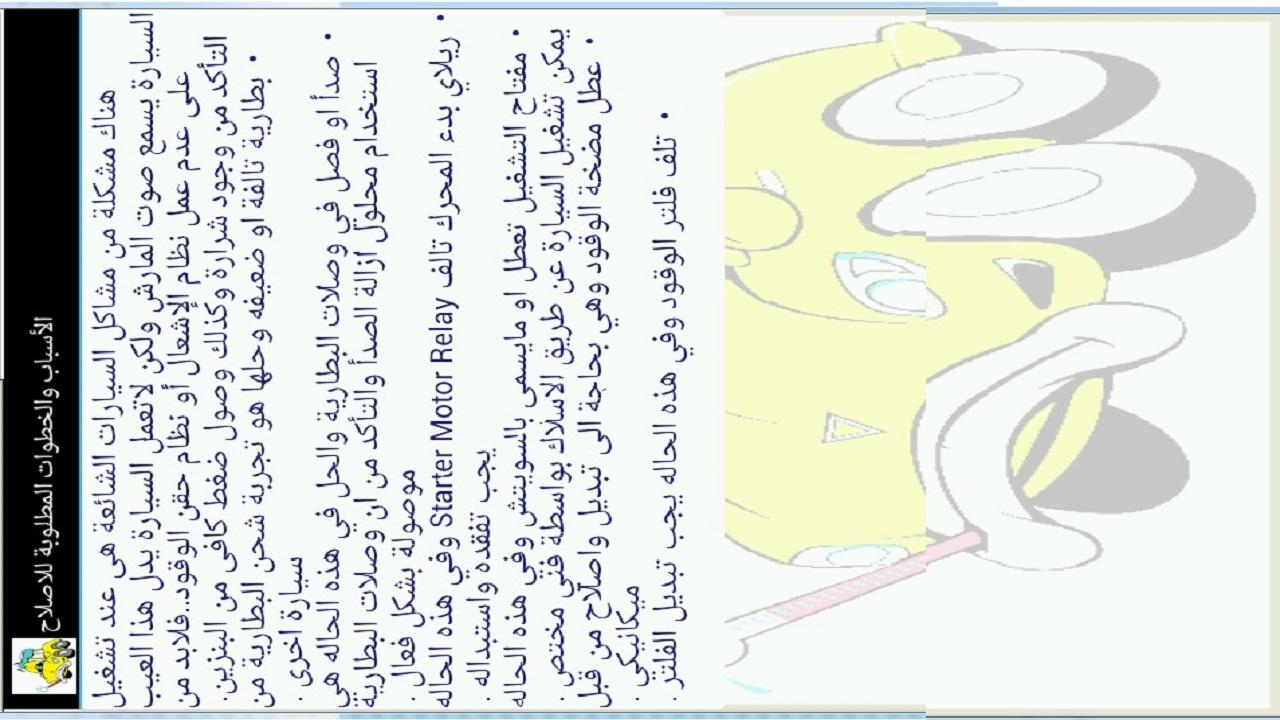 الأسباب والخطوات المطلوبة للاصلاح
هناك مشكلة من مشاكل السيارات الشائعة هى عند تشغيل
السيارة يسمع صوت المارش ولكن لاتعمل السيارة يدل هذا العيب
على عدم عمل نظام الإشعال أو نظام حقن الوقود..فلابد من
التأكد من وجود شرارة وكذلك وصول ضغط كافى من البنزين.
• بطارية تالفة او ضعيفه وحلها هو تجربة شحن البطارية من
سيارة اخرى .
• صدأ او فصل في وصلات البطارية والحل في هذه الحاله هي
استخدام محلول ازالة الصدأ والتأكد من ان وصلات البطارية
موصولة بشكل فعال .
• ريلاي بدء المحرك تالف Starter Motor Relay وفي هذه الحاله
يجب تفقدة واستبداله .
• مفتاح التشغيل تعطل او مايسمى بالسويتش وفي هذه الحاله
يمكن تشغيل السيارة عن طريق الاسلاك بواسطة فني مختص .
• عطل مضخة الوقود وهي بحاجة الى تبديل واصلاح من قبل
ميكانيكي .
• تلف فلتر الوقود وفي هذه الحاله يجب تبديل الفلتر .